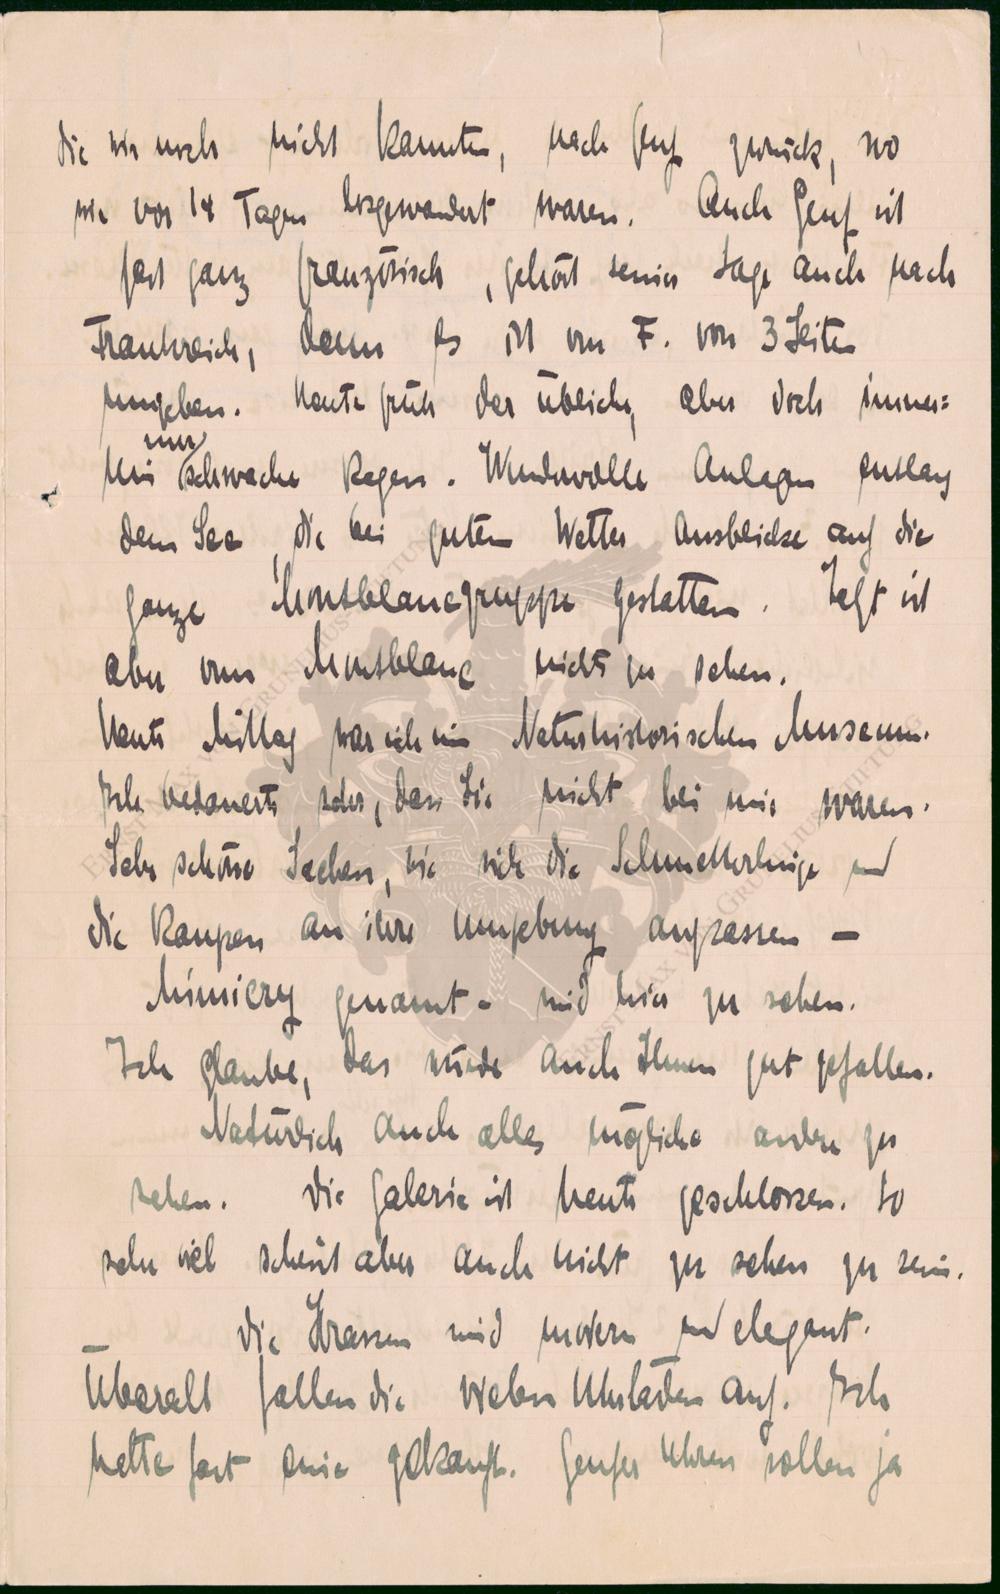 die wir noch nicht kannten, nach Genf zurück, wo
wir vor 14 Tagen losgewandert waren. Auch Genf ist
fast ganz französisch, gehört seiner Lage auch nach
Frankreich, denn es ist von F. von 3 Seiten
umgeben. Heute früh der übliche, aber doch immer=
hin nur schwache Regen. Wundervolle Anlagen entlang
dem See, die bei gutem Wetter Ausblicke auf die
ganze Montblancgruppe gestatten. Jetzt ist
aber vom Montblanc nichts zu sehen.
Heute Mittag war ich im Naturhistorischen Museum.
Ich bedauerte sehr, dass Sie nicht bei mir waren.
Sehr schöne Sachen, wie sich die Schmetterlinge und
die Raupen an ihre Umgebung anpassen —
Mimicry genannt - sind hier zu sehen.
Ich glaube, das würde auch Ihnen gut gefallen.
Natürlich auch alles mögliche andere zu
sehen. Die Galerie ist heute geschlossen. So
sehr viel scheint aber auch nicht zu sehen zu sein.
Die Strassen sind modern und elegant.
Überall fallen die vielen Uhrläden auf. Ich
hätte fast eine gekauft. Genfer Uhren sollen ja
ERNST MAX VON GRUNELIUS-STIFTUNG
ERNST MAX VON GRUNELIUS-STIFTUNG